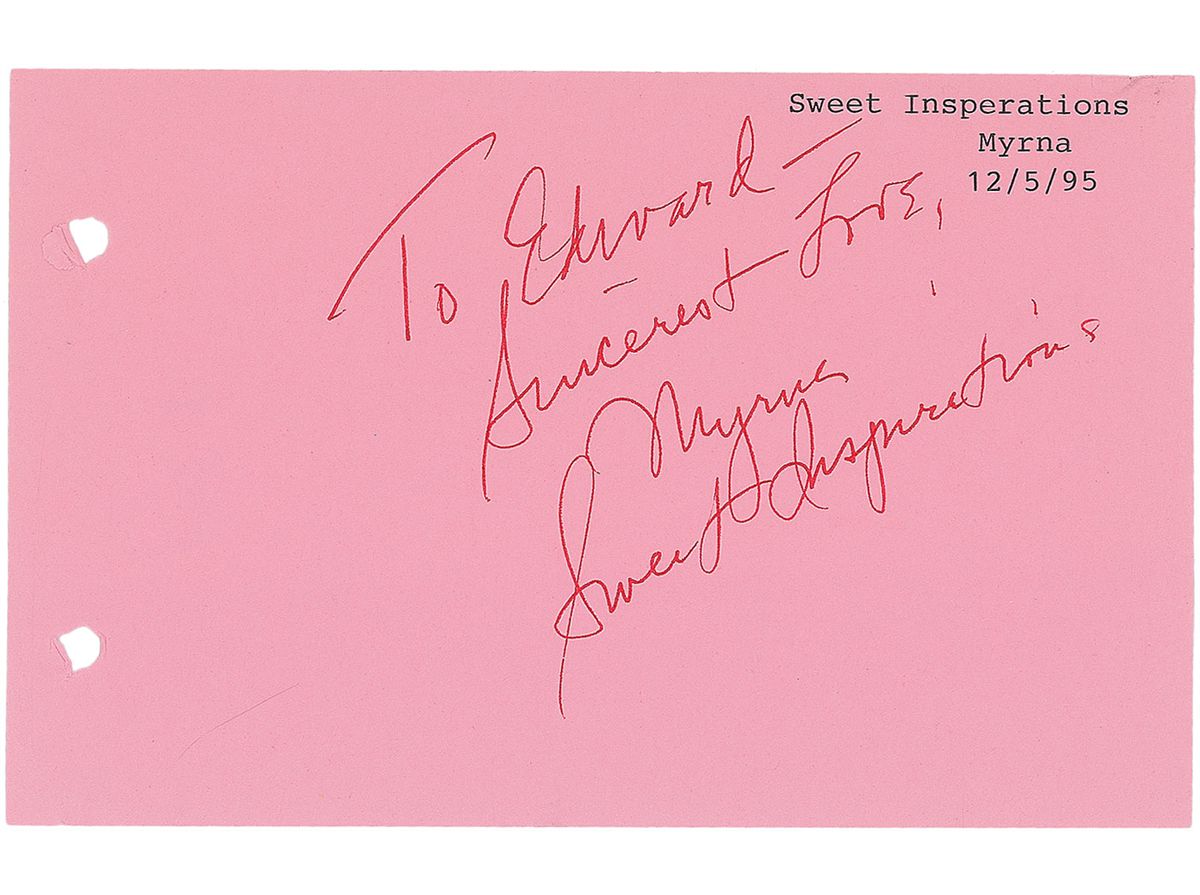 Sweet Insperations
Myrna
12/5/95
To Edward —
Sincerest Love,
Myrna
Sweet Inspirations